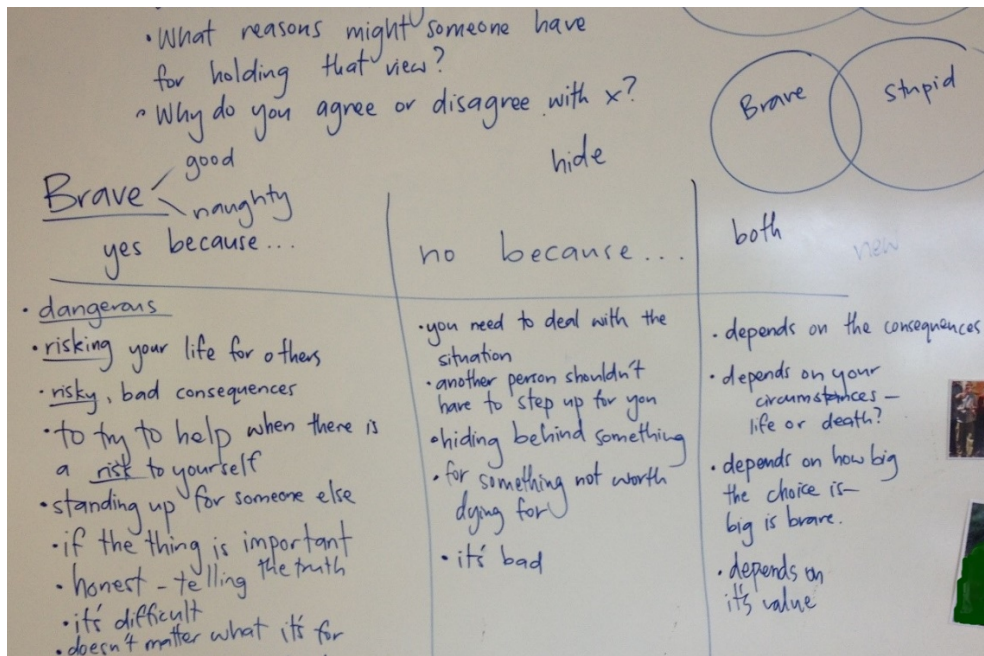 • What reasons might someone have
for holding that view?
• Why do you agree or disagree with x?
Brave
good
naughty
hide
Brave
Stupid
yes because...
• dangerous
• risking your life for others
• risky, bad consequences
• to try to help when there is
a risk to yourself
• standing up for someone else
• if the thing is important
• honest - telling the truth
• it's difficult
• doesn't matter what it's for
no because...
• you need to deal with the
situation
• another person shouldn't
have to step up for you
• hiding behind something
• for something not worth
dying for
• it's bad
both
new
• depends on the consequences
• depends on your
circumstances –
life or death?
• depends on how big
the choice is –
big is brave.
• depends on
it's value